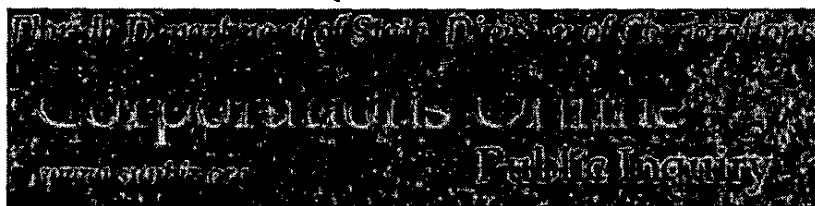 Florida Department of State, Division of Corporations
Corporations Online
Public Inquiry